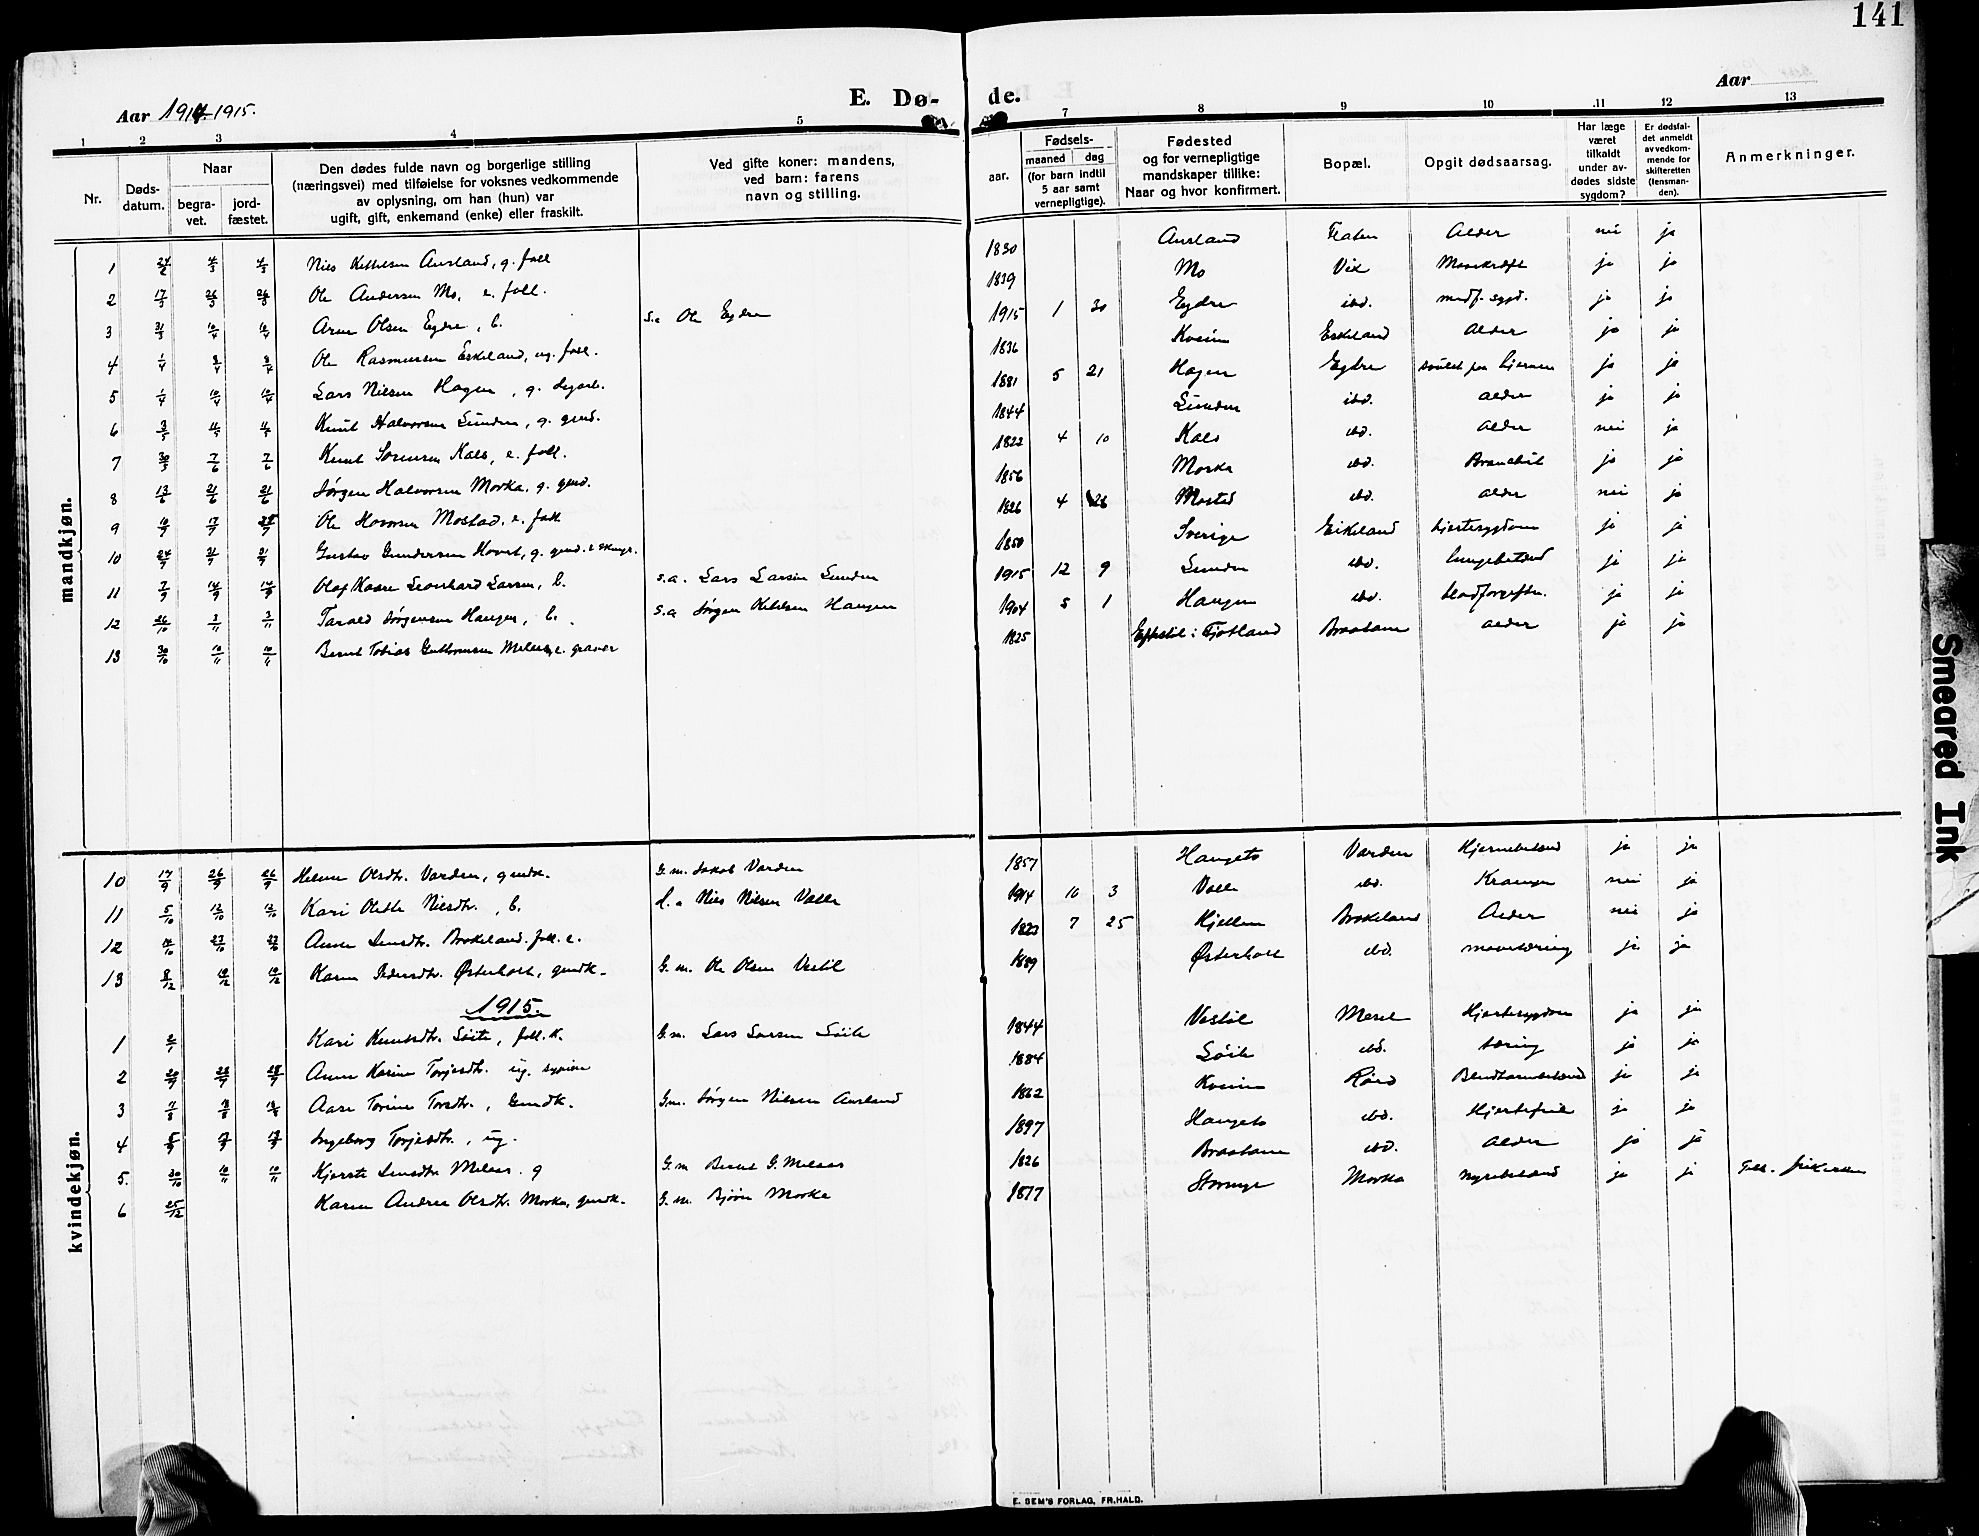 141
Aar 1914-1915.
E. Dø- de.
Aar
1 2 3 4 5 7 8 9 10 11 12 13
Nr.
Døds-
datum.
Naar
begra-
vet.
jord-
fæstet.
Den dødes fulde navn og borgerlige stilling
(næringsvei) med tilføielse for voksnes vedkommende
av oplysning, om han (hun) var
ugift, gift, enkemand (enke) eller fraskilt.
Ved gifte koner: mandens,
ved barn: farens
navn og stilling.
aar.
Fødsels-
maaned dag
(for barn indtil
5 aar samt
vernepligtige).
Fødested
og for vernepligtige
mandskaper tillike:
Naar og hvor konfirmert.
Bopæl.
Opgit dødsaarsag.
Har læge
været
tilkaldt
under av-
dødes sidste
sygdom?
Er dødsfal-
det anmeldt
av vedkom-
mende for
skifteretten
(lensman-
den).
Anmerkninger.
mandkjøn.
1 Nils Ketilsen Aursland, g. foll 1830 Aursland Flaten Alder nei ja
2 17/3 26/3 26/3 Ole Andersen Mo, e. foll. 1839 Mo Vik Mavekræft ja ja
3 31/3 10/4 10/4 Arne Olsen Eydre, b. s.a Ole Eydre 1915 1 30 Eydre ibd. medf. sygd. ja ja
4 1/4 8/4 8/4 Ole Rasmussen Eskeland, ug. foll. 1836 Kveim Eskeland Alder ja ja
5 1/4 10/4 10/4 Lars Nielsen Hagen, g. 1881 5 21 Hagen Eydre svulst paa hjernen ja ja
6 3/5 11/5 11/5 Knut Halvorsen Lunden, g. gmd. 1844 Lunden ibd. alder ja ja
7 30/5 7/6 7/6 Knut Sørensen Kals, e. foll. 1822 4 10 Kals ibd. alder nei ja
8 13/6 21/6 21/6 Jørgen Halvorsen Morka, g. gmd. 1856 Morka ibd. ja ja
9 10/9 17/9 Ole Mostad, e. folk 1826 4 26 Mostad ibd. alder nei ja
10 Gustav Gundersen Hovet, g. gmd. 1850 Sverige Eikeland hjertesygdom ja ja
11 7/9 14/9 14/9 Olaf Kaare Leonhard Larsen, b. s.a. Lars Larsen Lunden 1915 12 9 Lunden ibd. lungebetænd ja ja
12 26/10 3/11 3/11 Tarald Jørgensen Haugen, b. s.a Jørgen Ketilsen Haugen 1904 5 1 Haugen ibd. blodforgiftn. ja ja
13 30/10 10/11 10/11 Bernt Tobias Guttormsen Melaas, e. graver 1825 Eftestøl i Fjotland Braatane alder ja ja
kvindekjøn.
10 17/9 26/9 26/9 Helene Olsdtr. Varden, gmdk. G.m. Jakob Varden 1857 Haugeto Varden Hjernebetænd ja ja
11 5/10 12/10 12/10 Kari Olette Nilsdtr., b. Nils Nilsen Valle 1914 10 3 Valle ibd. Krampe nei ja
12 23/10 23/10 Anne Brokeland. foll. e. 1823 7 25 Kjellen Brokeland Alder nei ja
13 8/12 19/12 19/12 Karen Pedersdtr. Østerholt, gmdk. G.m. Ole Olsen Vestøl 1889 Østerholt ibd. mavetæring ja ja
1915.
1 Kari Knutsdtr. Løite, foll. k. G.m. Lars Larsen Løite 1844 Vestøl Mesel Hjertesygdom ja ja
2 Anne Karine Torjesdtr. ug. syerske 1884 Løite ibd. tæring ja ja
3 Aase Torine Torsdtr., Gmdk. G.m. Jørgen Nilsen Aursland 1862 Kveim Røed Blindtarmbetænd ja ja
4 Ingeborg Torjesdtr., ug. 1897 Haugeto ibd. Hjertefeil ja ja
5. 30/10 10/11 10/11 Kjersti Melaas. g G.m Bernt G. Melaas 1826 Braatane ibd. Alder ja ja
6 25/12 Karen Andrea Olsdtr. Morka, gmdk. G.m. Bjørn Morka 1877 Morka nyrebetænd ja ja frikirken
E. SEM'S FORLAG, FR.HALD.
Smeared Ink